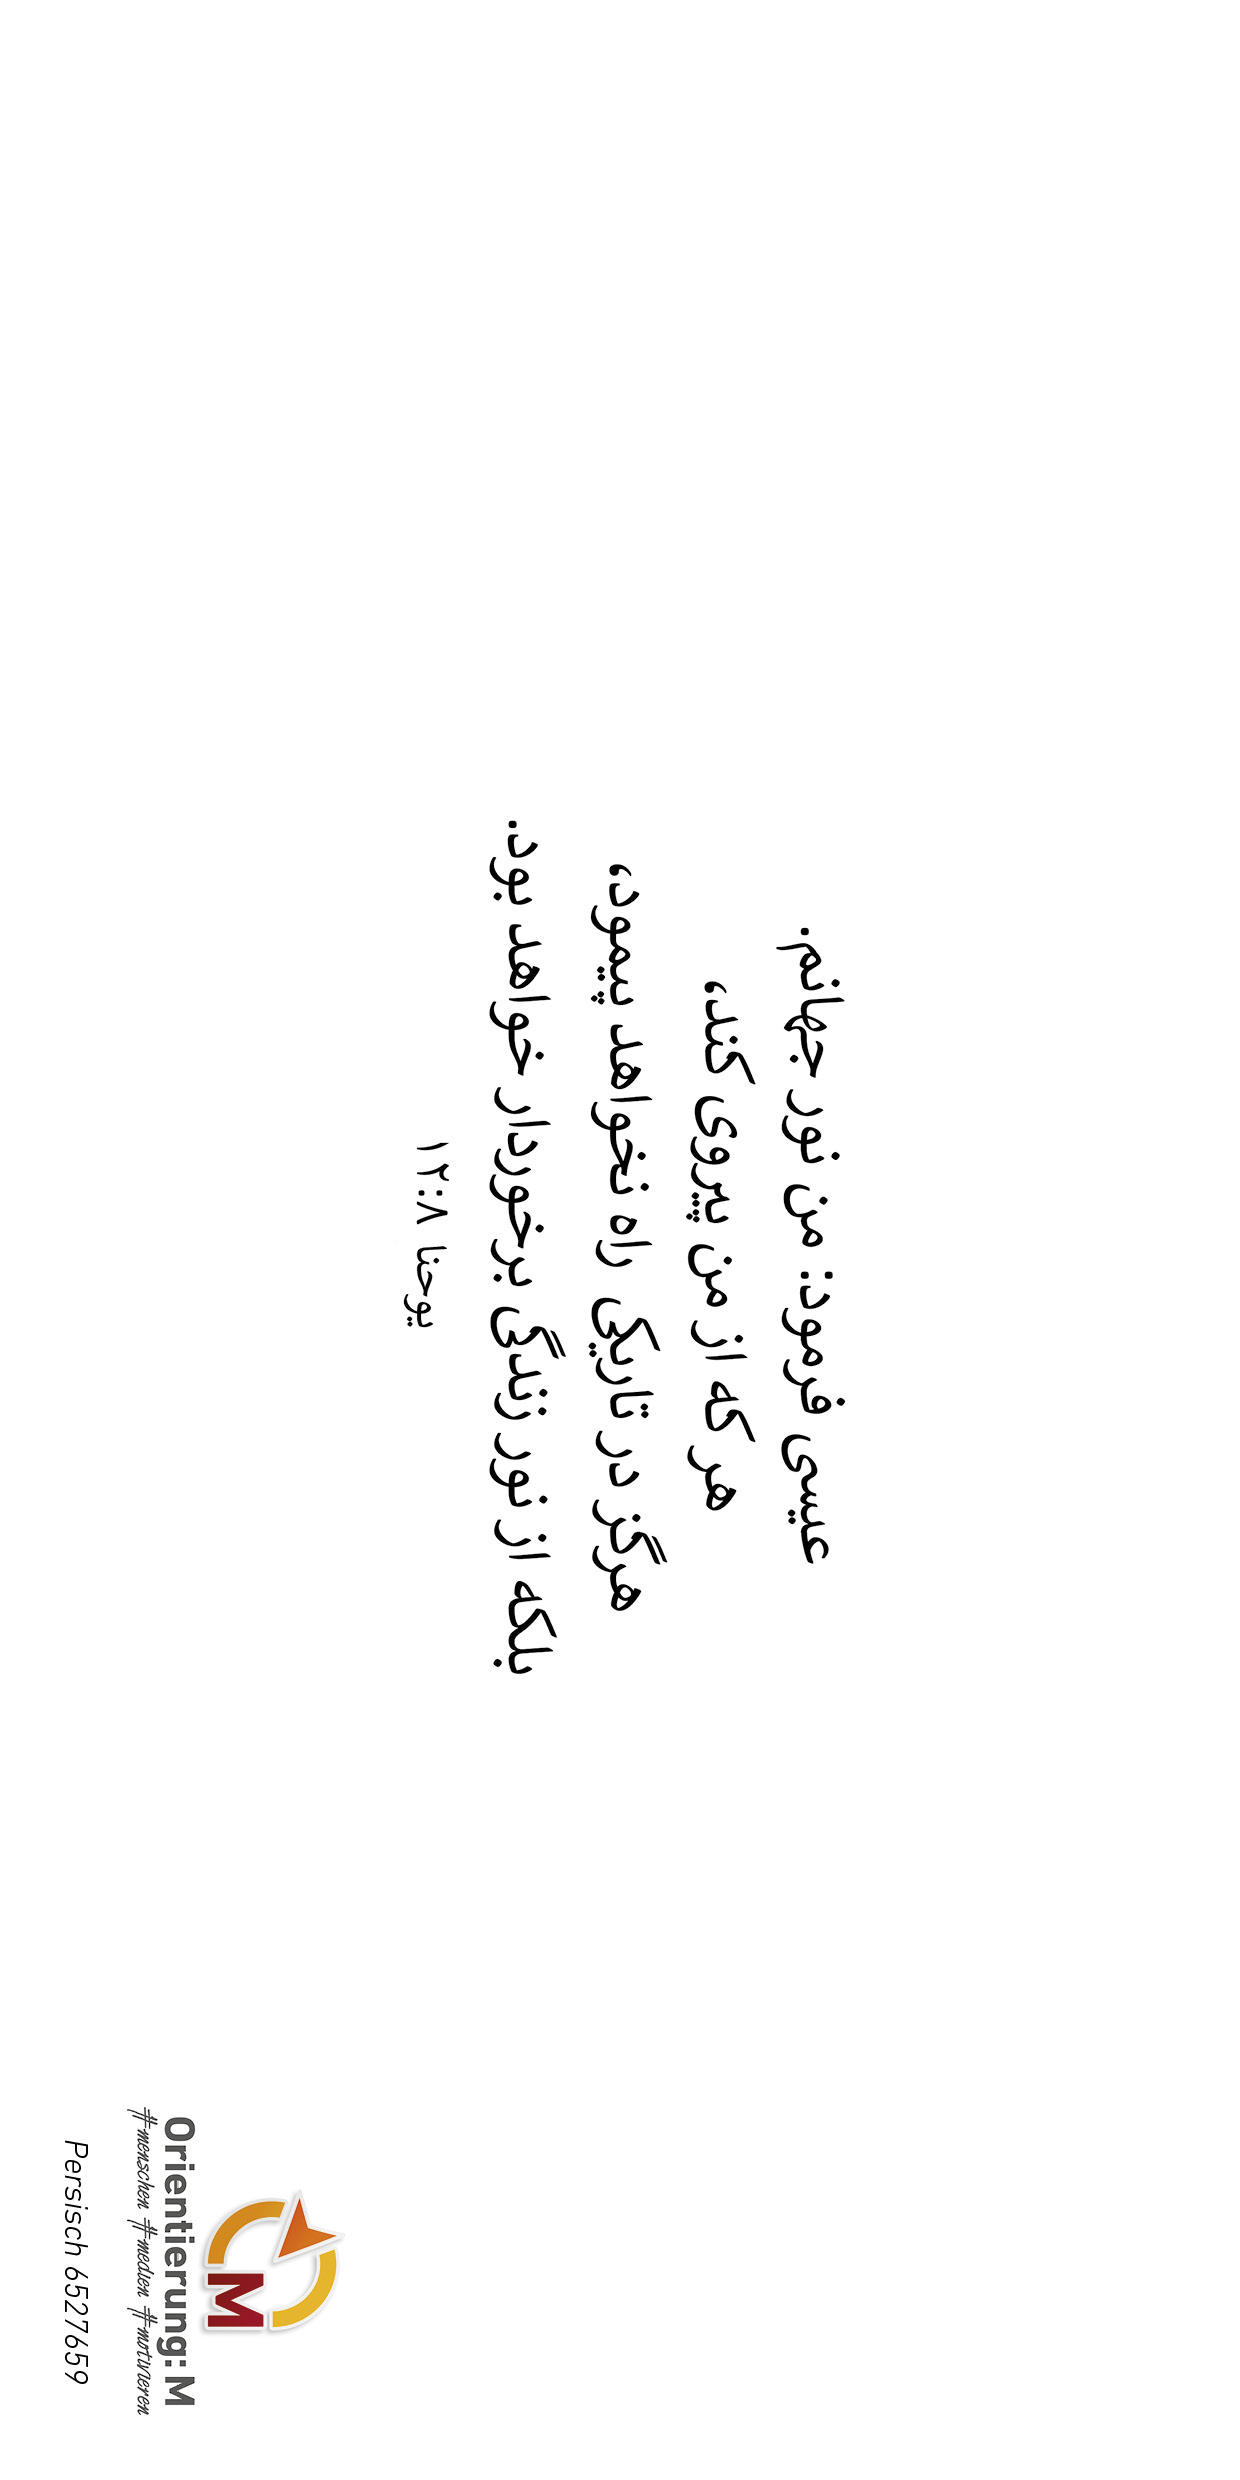 عیسی فرمود: من نور جهانم.
هر که از من پیروی کند،
هرگز در تاریکی راه نخواهد پیمود،
بلکه از نور زندگی برخوردار خواهد بود.
یوحنا ۸:‏۱۲
M
Orientierung: M
#menschen #medien #motivieren
Persisch 6527659